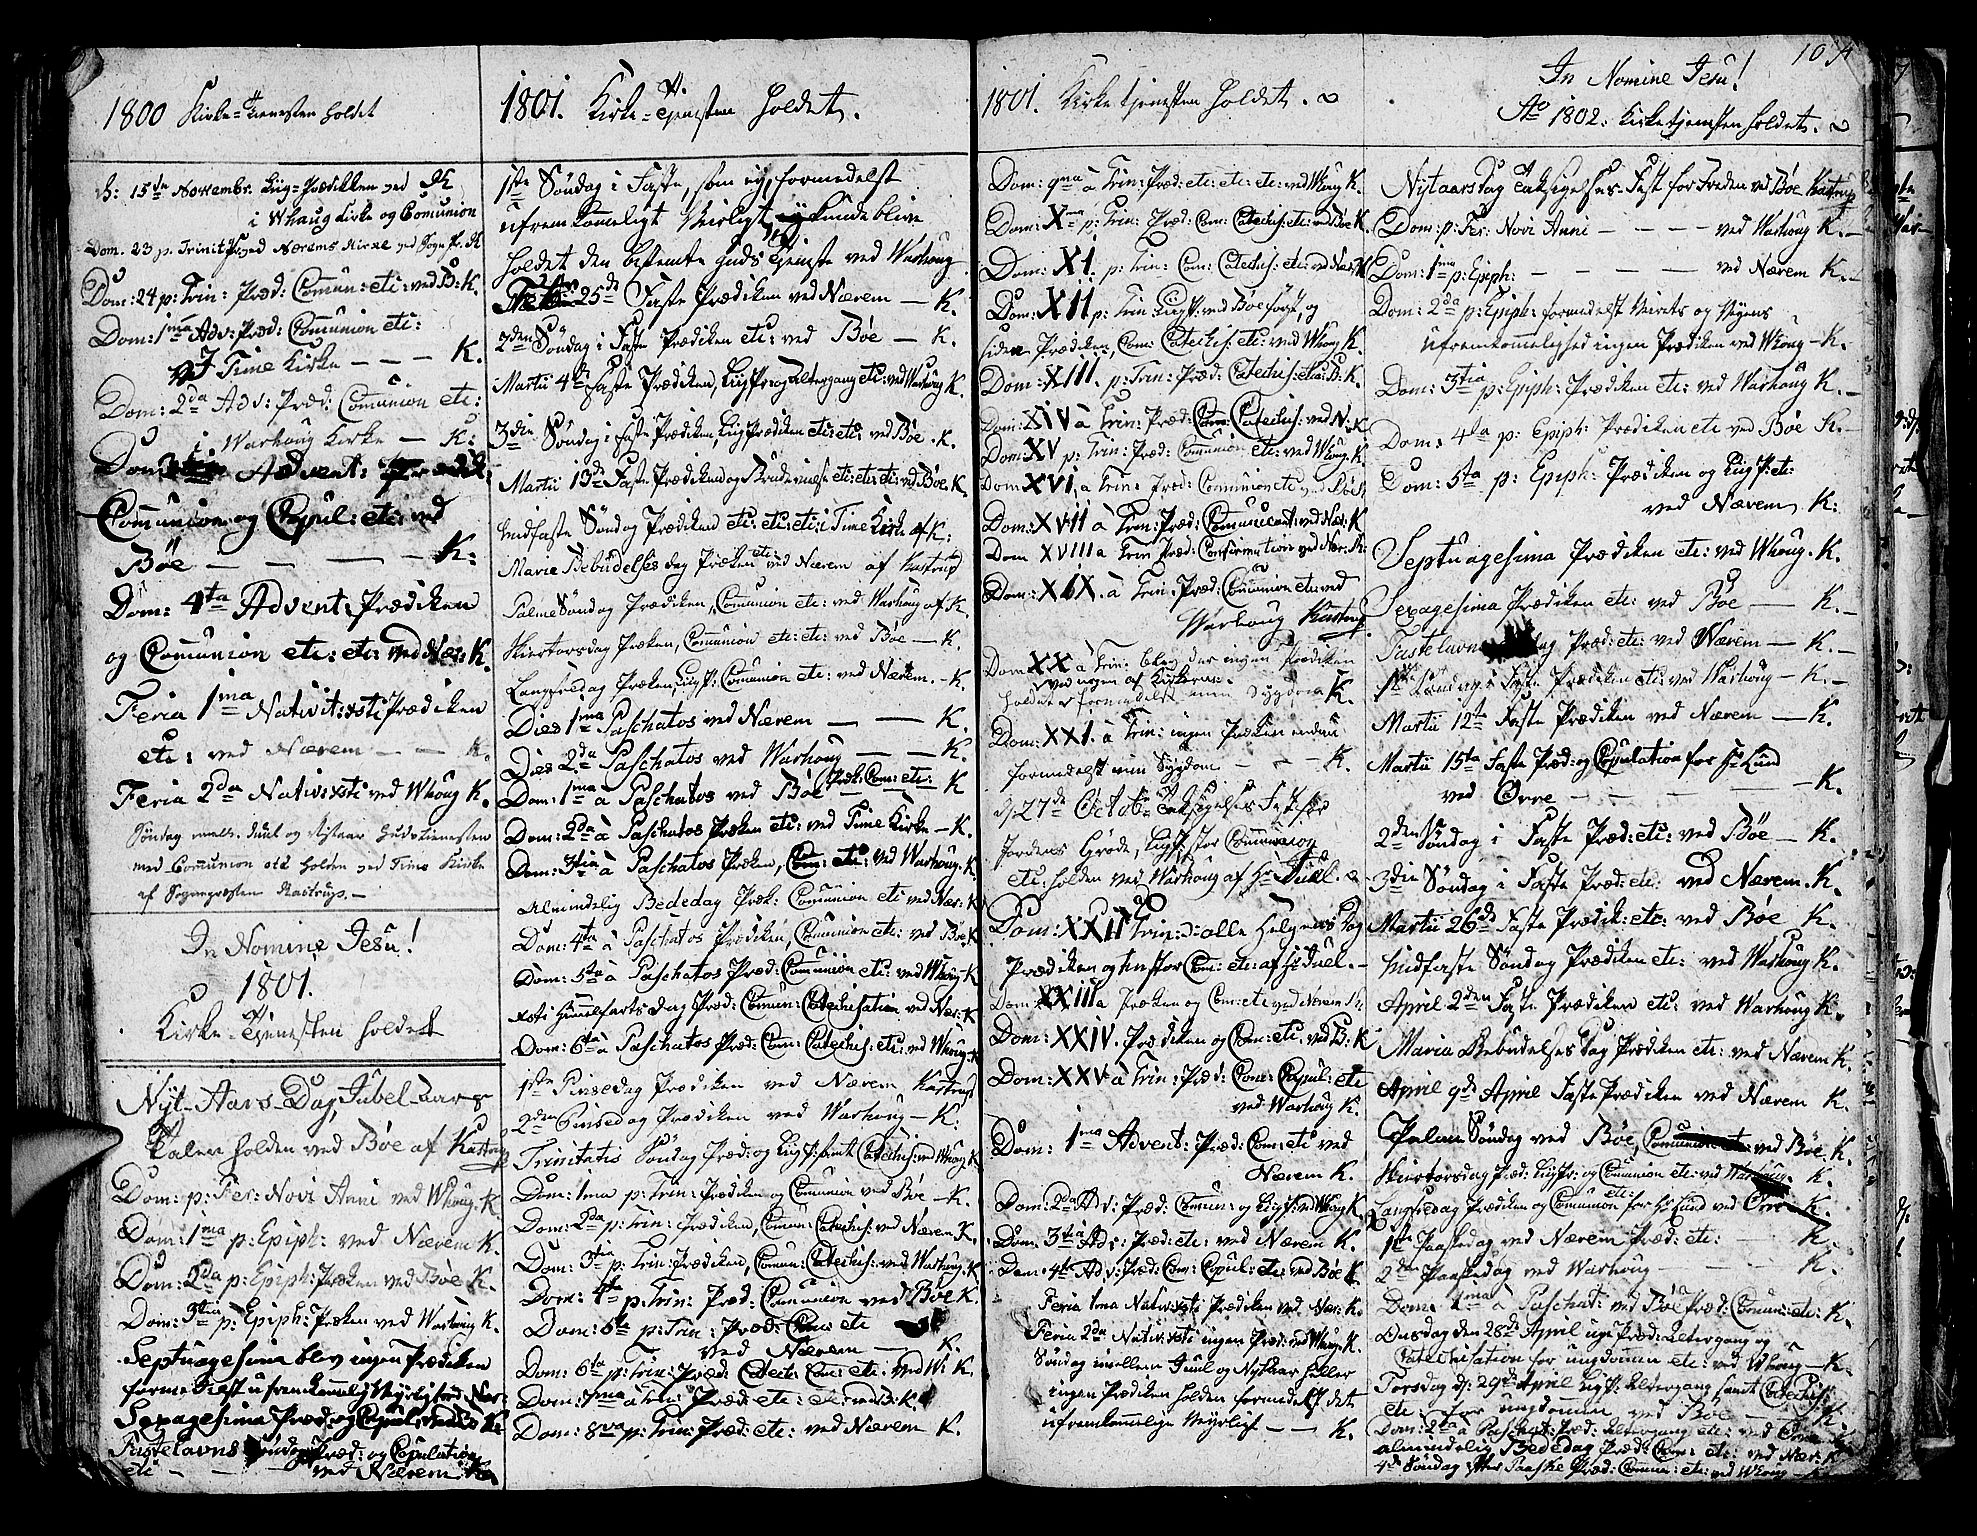 1800 Kirke-Tienesten holdet
d: 15de Novembr. Liig-Prædikken ved
i Whaug Kirke og Comunion
Dom. 23 p. Trinit ved Nærems Kirke ved
Dom: 24 p: Trin: Præd: Comun: etc: ved B: K.
Dom: 1ma Adv: Præd: Comunion etc:
Time Kirke — — — K.
Dom: 2da Adv: Præd: Comunion etc:
i Warhoug Kirke — K:
Dom: Advent:
Comunion og Copul: etc: ved
Böe — — — — K:
Dom: 4ta Advent: Prædiken
og Comunion etc: etc: ved Nær: K.
Feria 1ma Nativit: xsti Prædiken
etc: ved Nærem — — K.
Feria 2da Nativ: xsti ved Whoug K.
Söndag mell. Juul og Nytaar Gudstienesten
med Comunion etc holden ved Time Kirke
af Sognepræsten Kastrup. —
In Nomine Jesu!
1801.
Kirke-Tjenesten holdet
Nyt-Aars-Dag, Jubel-Aars
Taler holden ved Bøe af Kastrup
Dom: p: Fer: Novi Anni ved Whoug. K
Dom: 1ma p: Epiph: ved Nærem K.
Dom: 2da p: Epiph: Præken ved Bøe K.
Dom: 3tia p: Epiph: Præken ved Warhoug K.
Septuagesima blev ingen Prædiken
formedelst ufremkommelig Veyrligt ved Nær.
Sexagesima Præd: og Copul: ved Bö K.
Fastelavns Söndag Præd: og Copulation
etc — — — ved Nærem K.
1801. Kirke-Tjenesten holdet.
1ste Søndag i Faste, som ey, formedelst
ufremkommeligt Veirligt, kunde blive
holdet den bestemte Guds Tjeneste ved Warhoug
25de Faste Prædiken ved Nærem — K.
2den Søndag i Faste Prædiken etc: ved Bøe — K.
Martii 4de Faste Prædiken, Liigpr: og Altergang etc: ved Warhoug K.
3die Söndag i Faste Prædiken Liig Prædiken etc: etc: ved Bøe. K.
Martii 13de Faste Prædiken og Brudevielse etc: etc: etc: ved Bøe K.
Midfaste Söndag Prædiken etc: etc: etc: i Time Kirke af K:
Mariæ Bebudelses dag Præken etc: ved Nærem af Kastrup
Palme Söndag Prædiken, Comunion etc: ved Warhoug af K.
Skiertorsdag Præken, Comunion etc: etc: ved Bøe — K.
Langfredag Præken Liigp: Comunion etc: ved Nærem. — K.
Dies 1ma Paschatos ved Nærem — — K.
Dies 2da Paschatos ved Warhoug — — K.
Dom: 1ma à Paschatos ved Bøe Præk: Com: etc: K
Dom: 2da à Paschatos Præken etc: ved Time Kirke — K.
Dom: 3tia à Paschatos Præken, Com: etc: ved Warhoug. K
Almindelig Bededag Præk: Comunion etc ved Nær: K
Dom: 4ta à Paschatos Prædiken, Comunion etc: ved Bøe K
Dom: 5ta à Paschatos Præd: Comunion etc: ved Whoug K
Xsti Himelfarts Dag Præd: Comun: Catechisation ved Nær: K
Dom: 6ta à Paschatos Præd: Com: Catechis: etc: ved Whoug K
1ste Pinsedag Prædiken ved Nærem Kastrup
2den Pinsedag Prædiken ved Warhoug — K.
Trinitatis Söndag Præd: og Liigp: samt Catechis: ved Whoug. K
Dom: 1ma p: Trin: Prædiken og Comunion ved Bøe — K.
Dom: 2da p: Trin: Prædiken, Comun: Catechis: ved Nærem. K.
Dom: 3tia p: Trin: Prædiken, Comun: Catechis: ved Warhoug. K
Dom: 4ta p: Trin: Præd: Comunion ved Bøe K.
Dom: 5ta p: Trin: Præd: Com: etc
ved Nærem — K.
Dom: 6ta p: Trin: Præd: Catech: Com: etc: ved W: K.
Dom: 7ma à Trin: Præd: etc: etc: ved B: K.
Dom: 8va p: Trin: Præd: etc: ved Nærem K.
1801. Kirketjenesten holdet.
Dom: 9ma à Trin: Præd: etc: etc: etc: ved Whoug K.
Dom: Xma p: Trin: Præd: Com: Catechis: etc: ved Bøe K.
Dom: XI. p: Trin: Com: Catechis: etc: ved Nær: K
Dom: XII p: Trin Liigp: ved Bøe først, og
siden Prædiken, Com: Catechis: etc: ved Whoug K.
Dom: XIII. p: Trin: Præd: Catechis: etc: B: K.
Dom: XIV à Trin: Præd: Com: Catechis: ved N: K
Dom: XV p: Trin: Præd: Comunion etc: ved Whoug. K.
Dom: XVI, à Trin: Præd: Comunion etc ved Bøe K
Dom: XVII à Trin: Præd: Comunicant: ved Nær: K
Dom XVIII à Trin Præd: Confirmation ved Nær: K:
Dom: XIX. à Trin: Præd: Comunion etc: ved
Warhoug Kastrup.
Dom: XX à Trin: blev der ingen Prædiken
ved nogen af Kirkerne
holdet formedelst min Sygdom K.
Dom: XXI. à Trin: ingen Præken endnu
formedelst min Sygdom — — — K.
d: 27de Octobr Taksigelses Fest for
Jordens Grøde, Liigp: stor Comunion
etc: holden ved Warhoug af Hr Juul.
Dom: XXII Trin: ɔ: alle Helgens Dag
Prædiken og Com: etc: af Hr Juel. —
Dom: XXIII à Præken og Com: etc ved Nærem K:
Dom: XXIV. Prædiken og Com: etc. ved B: K
Dom: XXV à Trin: Præd: Com: Copul: etc
ved Warhoug K.
Dom: 1ma Advent: Præd: Com: etc ved
Nærem K.
Dom: 2da Adv: Præd: Comun: og Liigp: ved Whoug K
Dom: 3tia Adv: Præd: etc: ved Nærem K.
Dom: 4ta Adv: Præd: Com: Copul: etc: ved Bøe K
Feria 1ma Nativ: xsti Prædiken ved Nær: K.
Feria 2da Nativ: xsti ingen Præd: ved Whoug K.
Söndag imellem Juul og Nytaar heller
ingen Prædiken holden formedelst det
ufremkommelige Veyrligt — — K.
104
In Nomine Jesu!
Ao 1802. Kirketjenesten holdet.
Nytaarsdag Taksigelses-Fest for Freden ved Bøe Kastrup
Dom: p: Fer: Novi Anni — — — — ved Warhoug K. —
Dom: 1ma p: Epiph: — — — — ved Nærem K. —
Dom: 2da p: Epiph: formedelst Veirets og Veyens
ufremkommelighed ingen Prædiken ved Whoug — K. —
Dom: 3tia p: Epiph: Prædiken etc: ved Warhoug K. —
Dom: 4ta p: Epiph: Prædiken etc ved Bøe K. —
Dom: 5ta p: Epiph: Prædiken og Liigp: etc:
ved Nærem K:
Septuagesima Prædiken etc: ved Whoug. K.
Sexagesima Prædiken etc: ved Bøe — K. —
Fastelavns ag Præd: etc: ved Nærem — K. —
1ste Søndag i Faste Prædiken etc: ved Warhoug — K. —
Martii 12te Faste Prædiken ved Nærem — K.
Martii 15ta Faste Præd: og Copulation for Hr Lund
ved Orre — — — — — K.
2den Søndag i Faste Præd: etc: ved Bøe — K.
3die Søndag i Faste Præd: etc: ved Nærem. K.
Martii 26de Faste Prædik: etc: ved Bøe K.
Midfaste Søndag Prædiken etc: ved Warhoug K.
April 2den Faste Prædiken etc: ved Warhoug K.
Maria Bebudelses Dag Prædiken etc: ved Nærem K.
April 9de April Faste Prædiken ved Nærem K.
Palme Søndag ved Bøe, ved Bøe. K.
Skiertorsdag Præd: Liigpr: og Comunion etc: ved Warhoug. K.
Langfredag Prædiken og Comunion etc: for Hr Lund ved Orre — K.
1ste Paaskedag ved Nærem Præd: etc: K.
2den Paaskedag ved Warhoug — — — K.
Dom: 1ma à Paschat: ved Bøe Præd: Comun: etc: K.
Onsdag den 28de April Præd: Altergang og
Catechisation for ungdommen etc: ved Whoug — K
Torsdag d: 29de April Liigp: Altergang samt Catechis:
etc: for ungdommen ved Bøe — K.
Dom: 2da à Paschat: Præd: Altergang etc: ved Orre
almindelig Bededag Præd: Com: etc: ved Nær: K
4de Søndag efter Paaske Præd: Comun: etc: ved Whoug — K